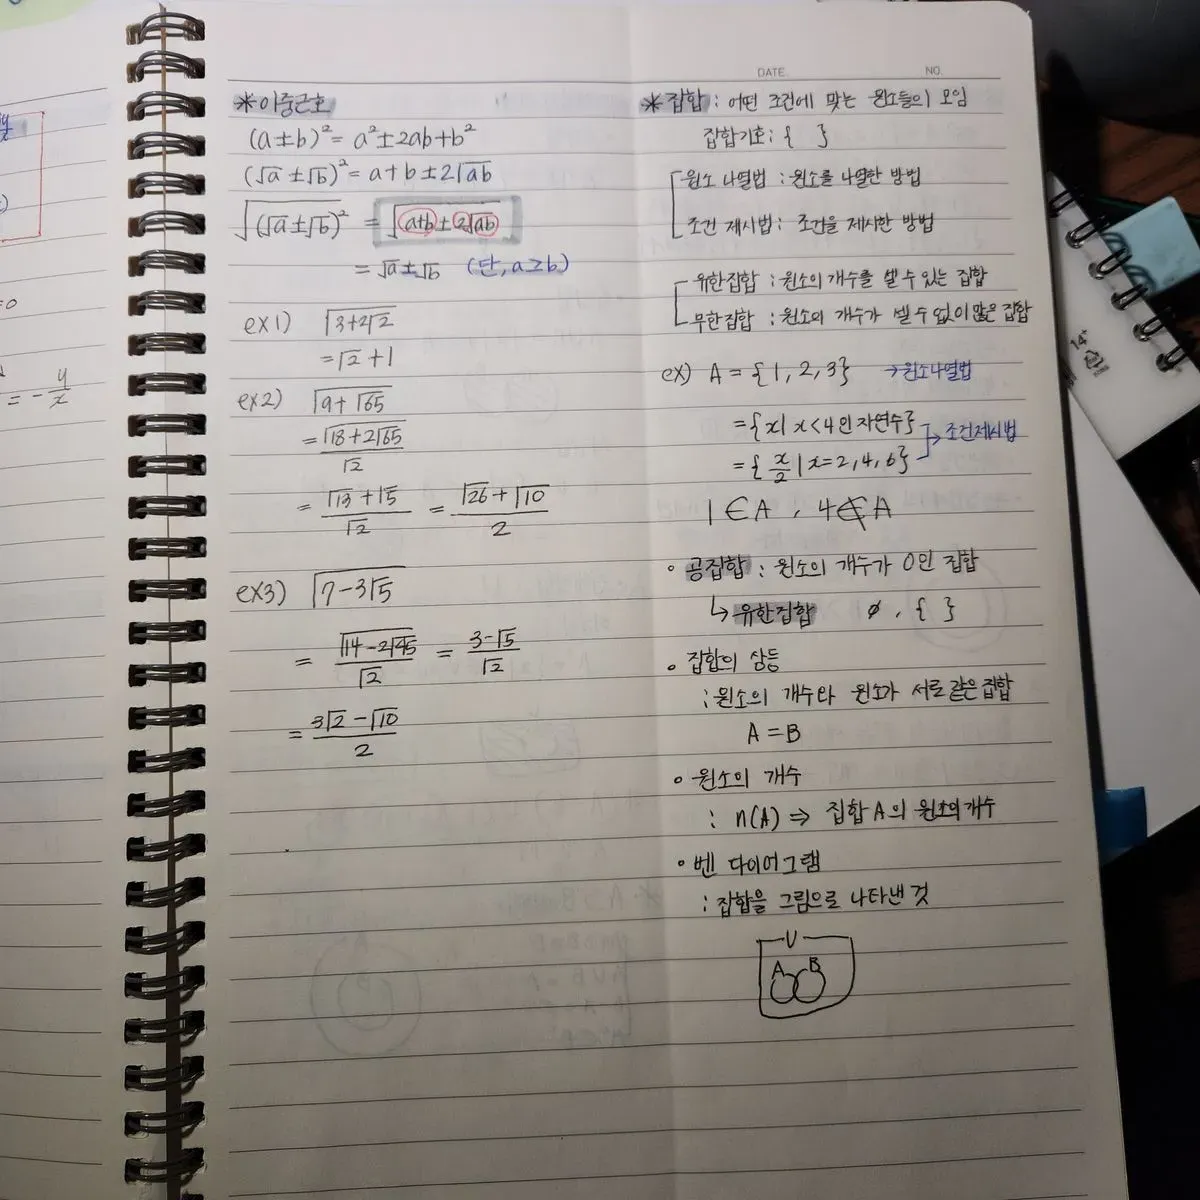 *이중근호
(a±b)² = a²±2ab+b²
(√a±√b)² = a+b±2√ab
√(√a±√b)² = √a+b±2√ab
= √a±√b (단, a≥b)
ex1) √3+2√2
= √2+1
ex2) √9+√65
= √18+2√65/√2
= √13+√5/√2 = √26+√10/2
ex3) √7-3√5
= √14-2√45/√2 = 3-√5/√2
= 3√2-√10/2
DATE. NO.
*집합 : 어떤 조건에 맞는 원소들의 모임
집합기호 : { }
원소 나열법 : 원소를 나열한 방법
조건 제시법 : 조건을 제시한 방법
유한집합 : 원소의 개수를 셀 수 있는 집합
무한집합 : 원소의 개수가 셀 수 없이 많은 집합
ex) A = {1, 2, 3} →원소나열법
= {x| x<4인 자연수}
→조건제시법
= {x/2 | x=2, 4, 6}
1∈A , 4∉A
• 공집합 : 원소의 개수가 0인 집합
↳ 유한집합 ∅ , { }
• 집합의 상등
: 원소의 개수와 원소가 서로 같은 집합
A = B
• 원소의 개수
: n(A) ⇒ 집합 A의 원소의 개수
• 벤 다이어그램
: 집합을 그림으로 나타낸 것
U
A B
= - y/x
=0
14